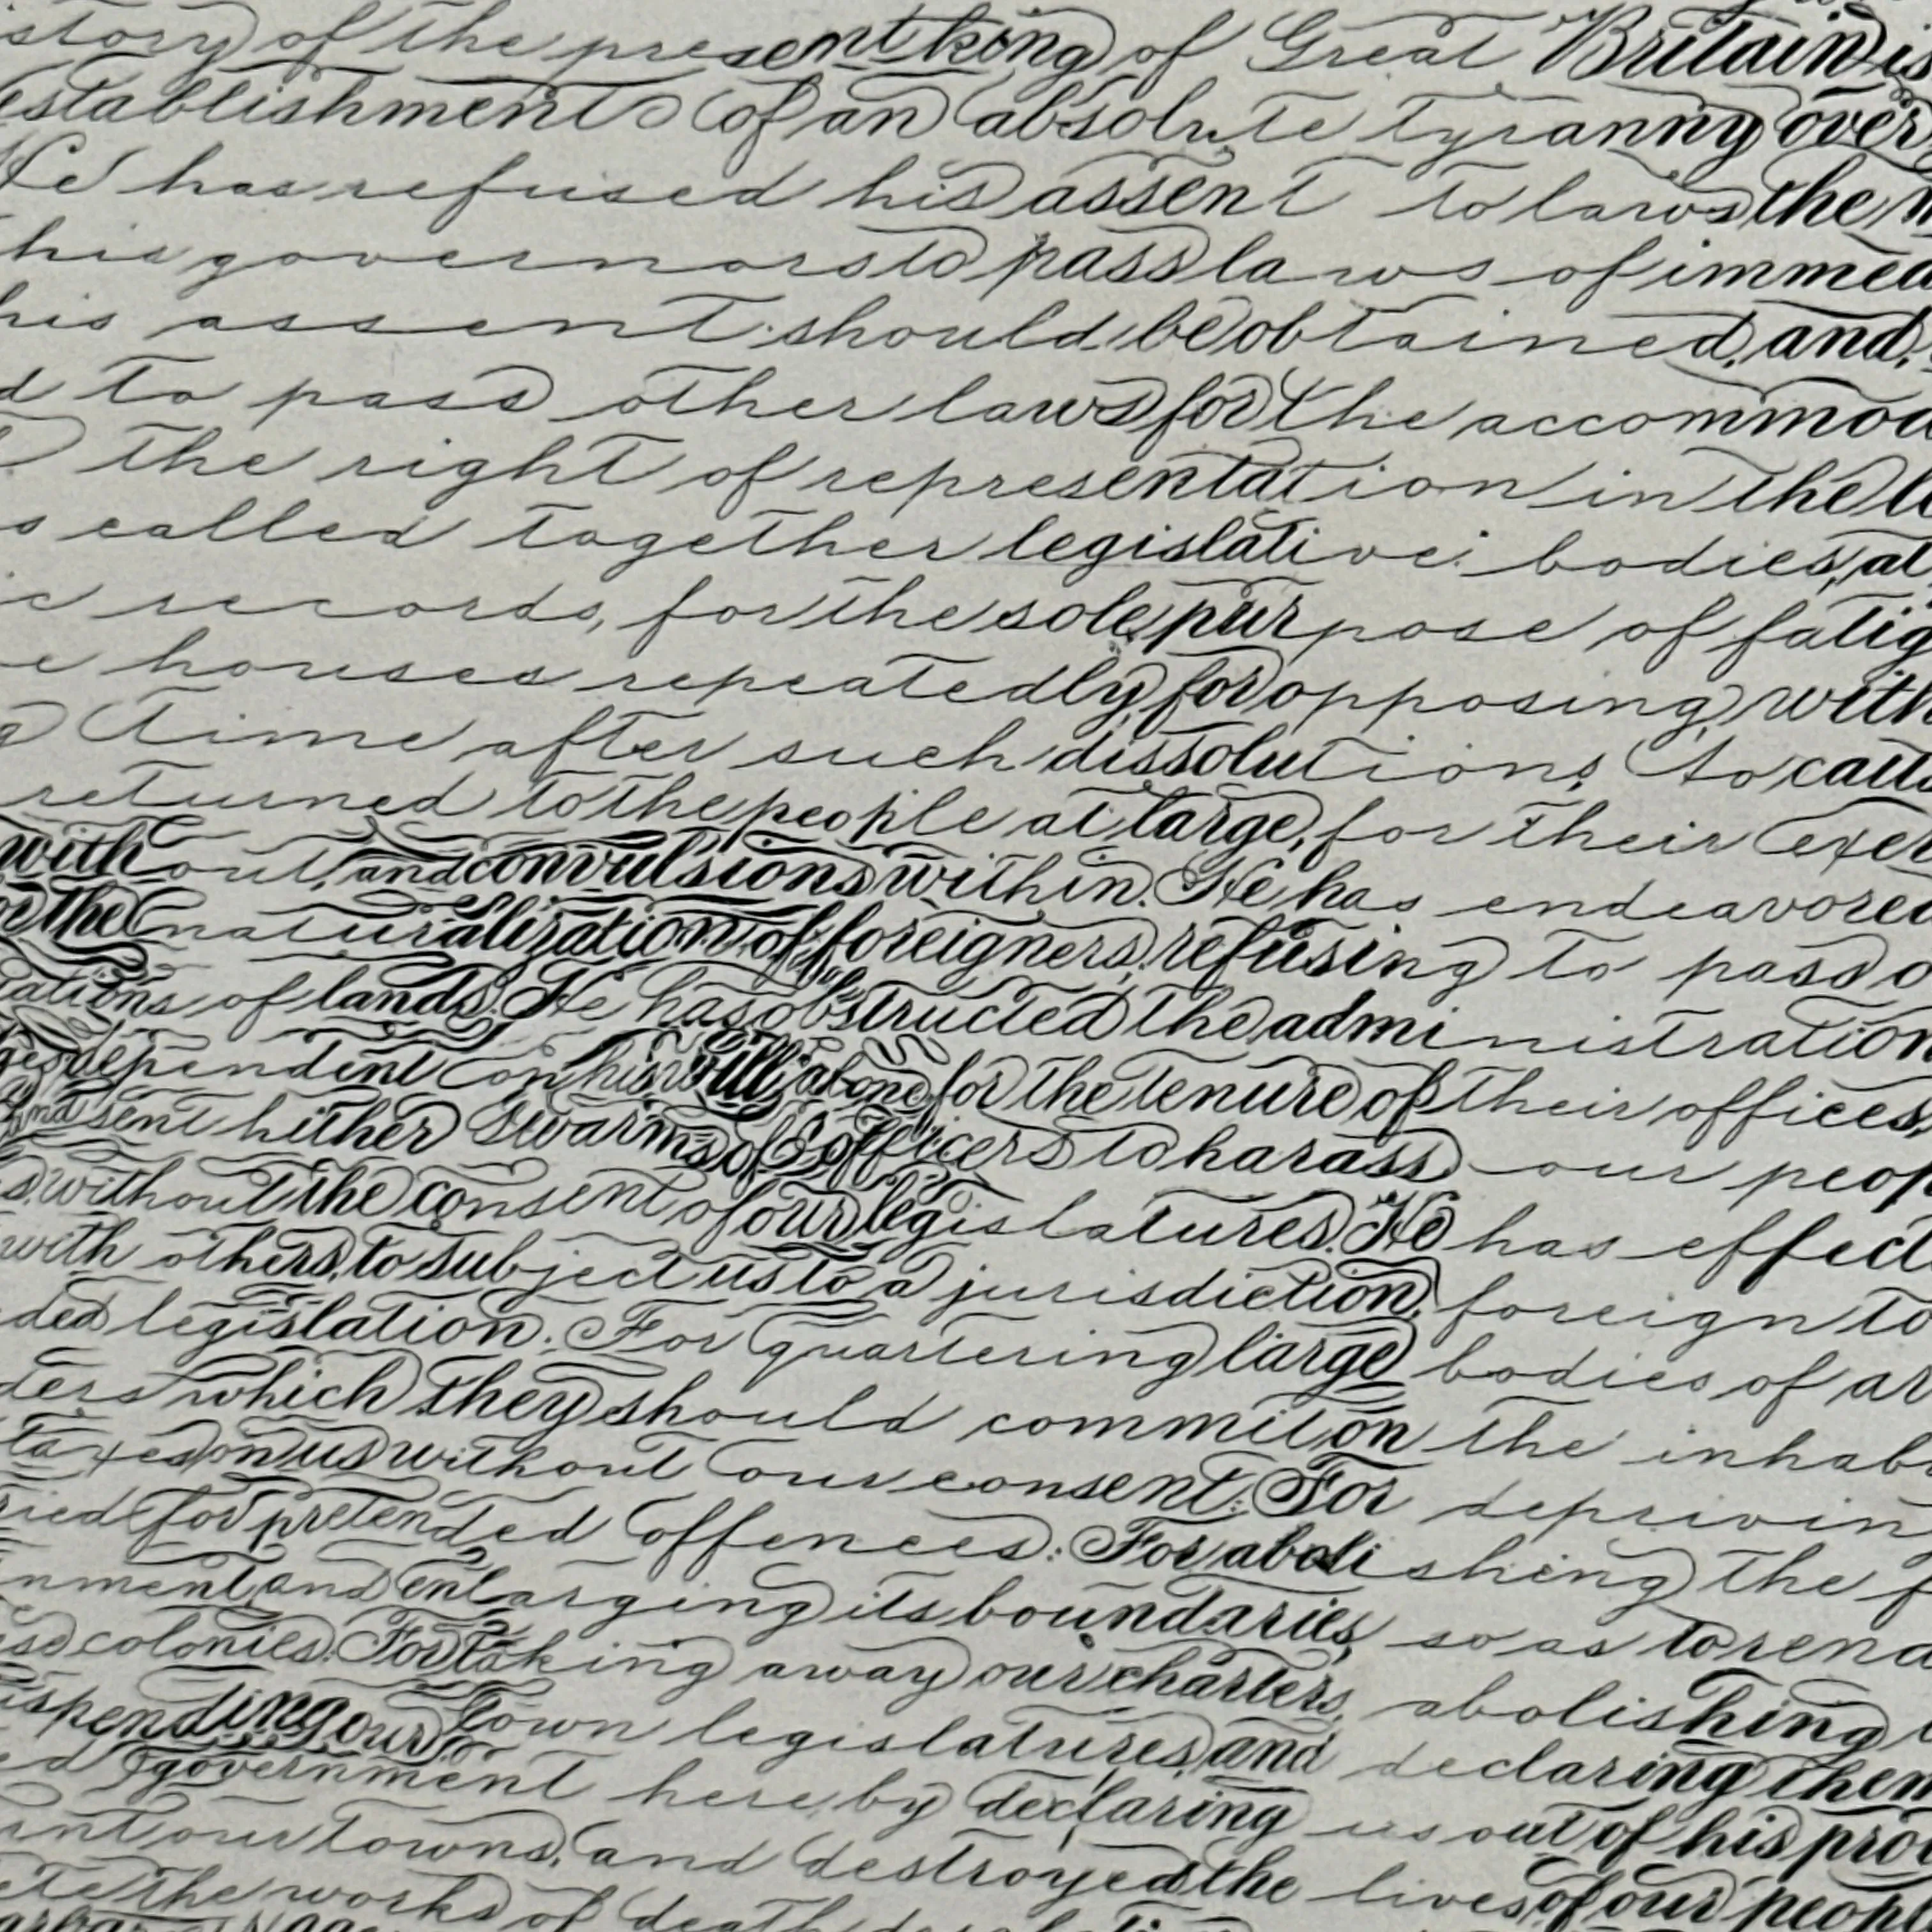 story of the present king of Great Britain is
establishment of an absolute tyranny over
He has refused his assent to laws the
his governors to pass laws of immed
his assent should be obtained, and,
d to pass other laws for the accommod
the right of representation in the l
s called together legislative bodies, at
ic records, for the sole purpose of fatig
e houses repeatedly for opposing with
g time after such dissolutions, to cau
returned to the people at large, for their exer
without, and convulsions within. He has endeavored
the naturalization of foreigners, refusing to pass o
iations of lands. He has obstructed the administration
ges dependent on his will alone for the tenure of their offices,
and sent hither swarms of officers to harass our peop
s, without the consent of our legislatures. He has effect
with others, to subject us to a jurisdiction, foreign to
ded legislation. For quartering large bodies of ar
ders which they should commit on the inhab
taxes on us without our consent: For deprivin
ried for pretended offences: For abolishing the f
nment, and enlarging its boundaries, so as to rend
ese colonies. For taking away our charters, abolishing
uspending our own legislatures, and declaring them
ed government here, by declaring us out of his pro
urnt our towns, and destroyed the lives of our people
ete the works of death,